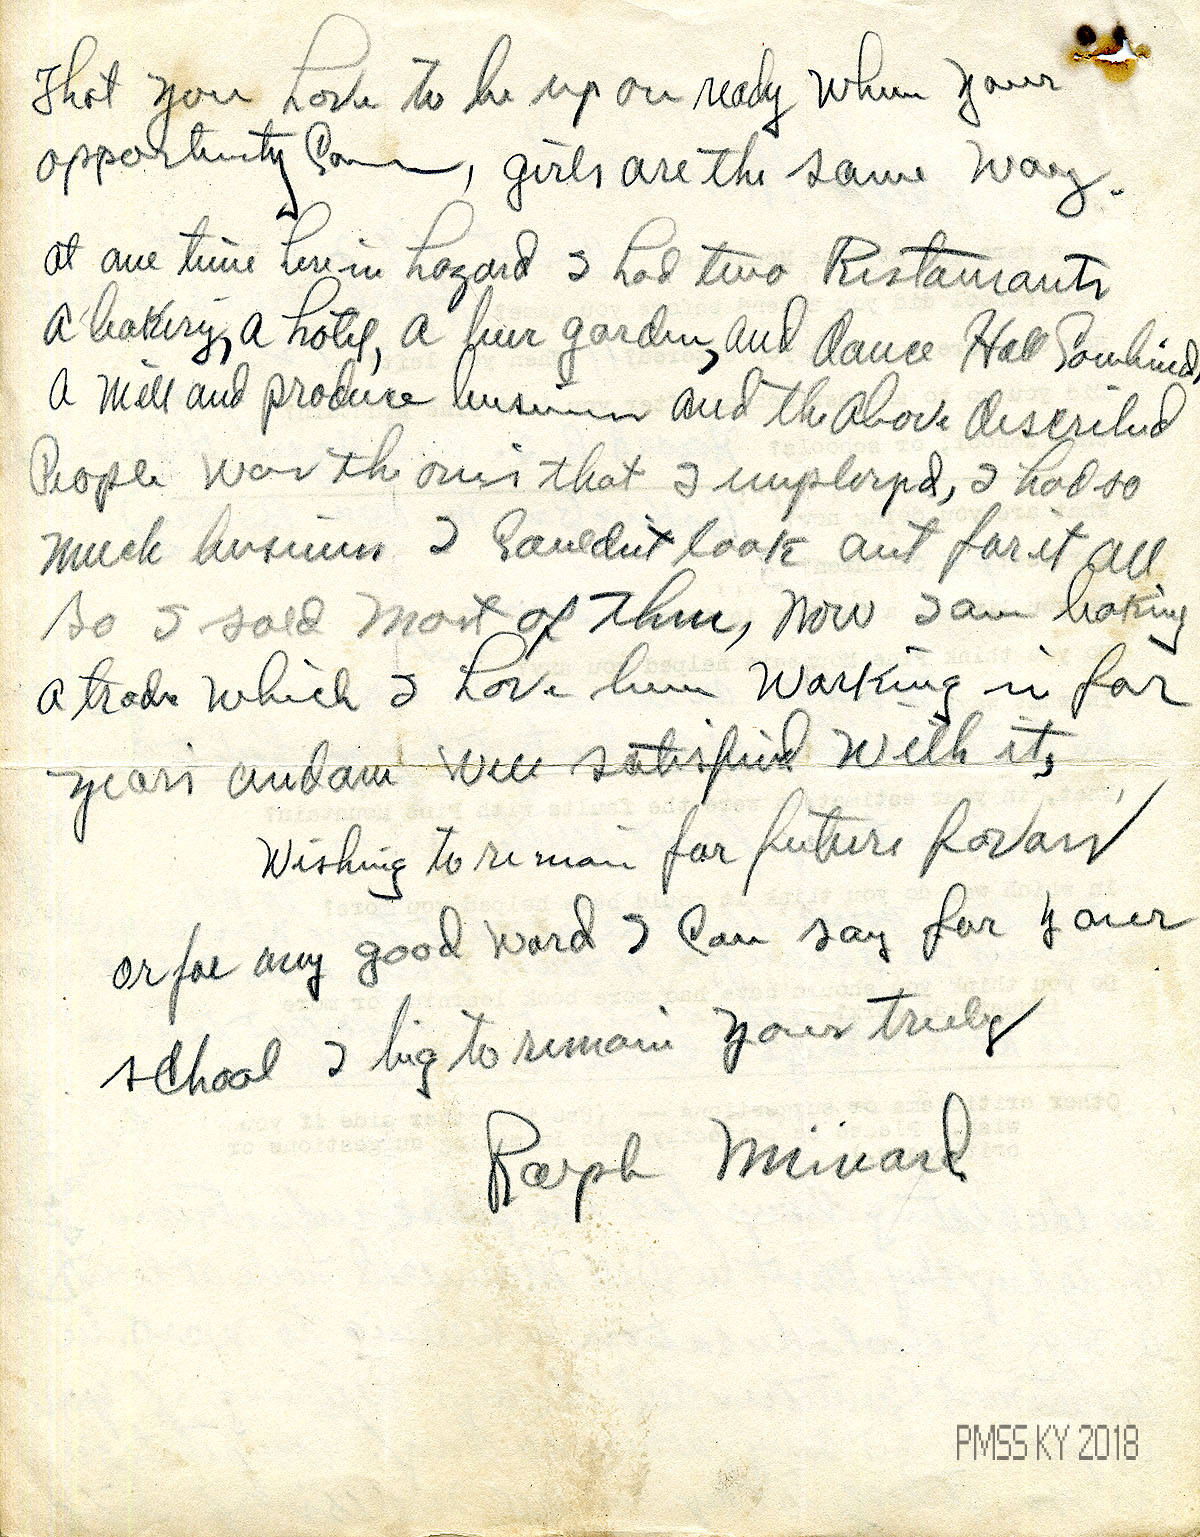 That you have to be up on ready when your
opportunity Come, girls are the same way.
at one time here in hazard I had two Restaurants
A bakery, a hotel, A beer garden, and dance Hall Combined,
A Mill and produce business and the above described
People was the ones that I employed, I had so
much business I Couldn't look out for it all
So I sold most of them, Now I am baking
A trade which I have been working in for
years and am well satisfied with it,
Wishing to remain for future favors
or for any good word I can say for your
school I beg to remain yours truly
Ralph
PMSS KY 2018